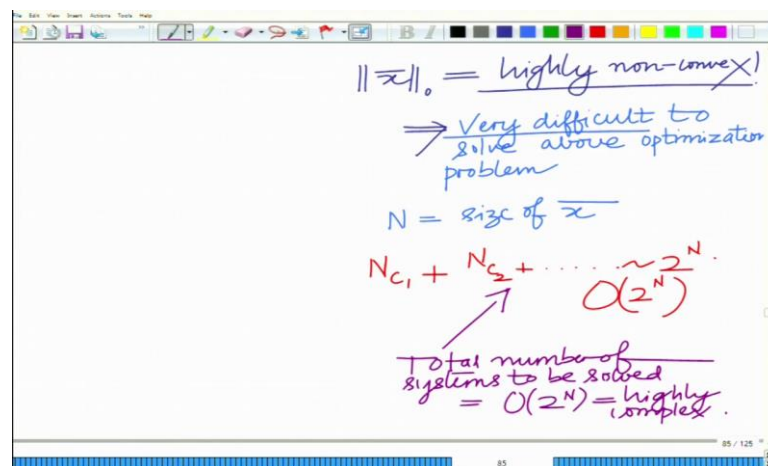 File Edit View Insert Actions Tools Help
B I
||x̄||₀ = highly non-convex!
⇒ Very difficult to
solve above optimization
problem
N = size of x̄
N_C₁ + N_C₂ + ...... ~ 2^N.
O(2^N)
Total number of
systems to be solved
= O(2^N) = highly
complex.
85 / 125
85